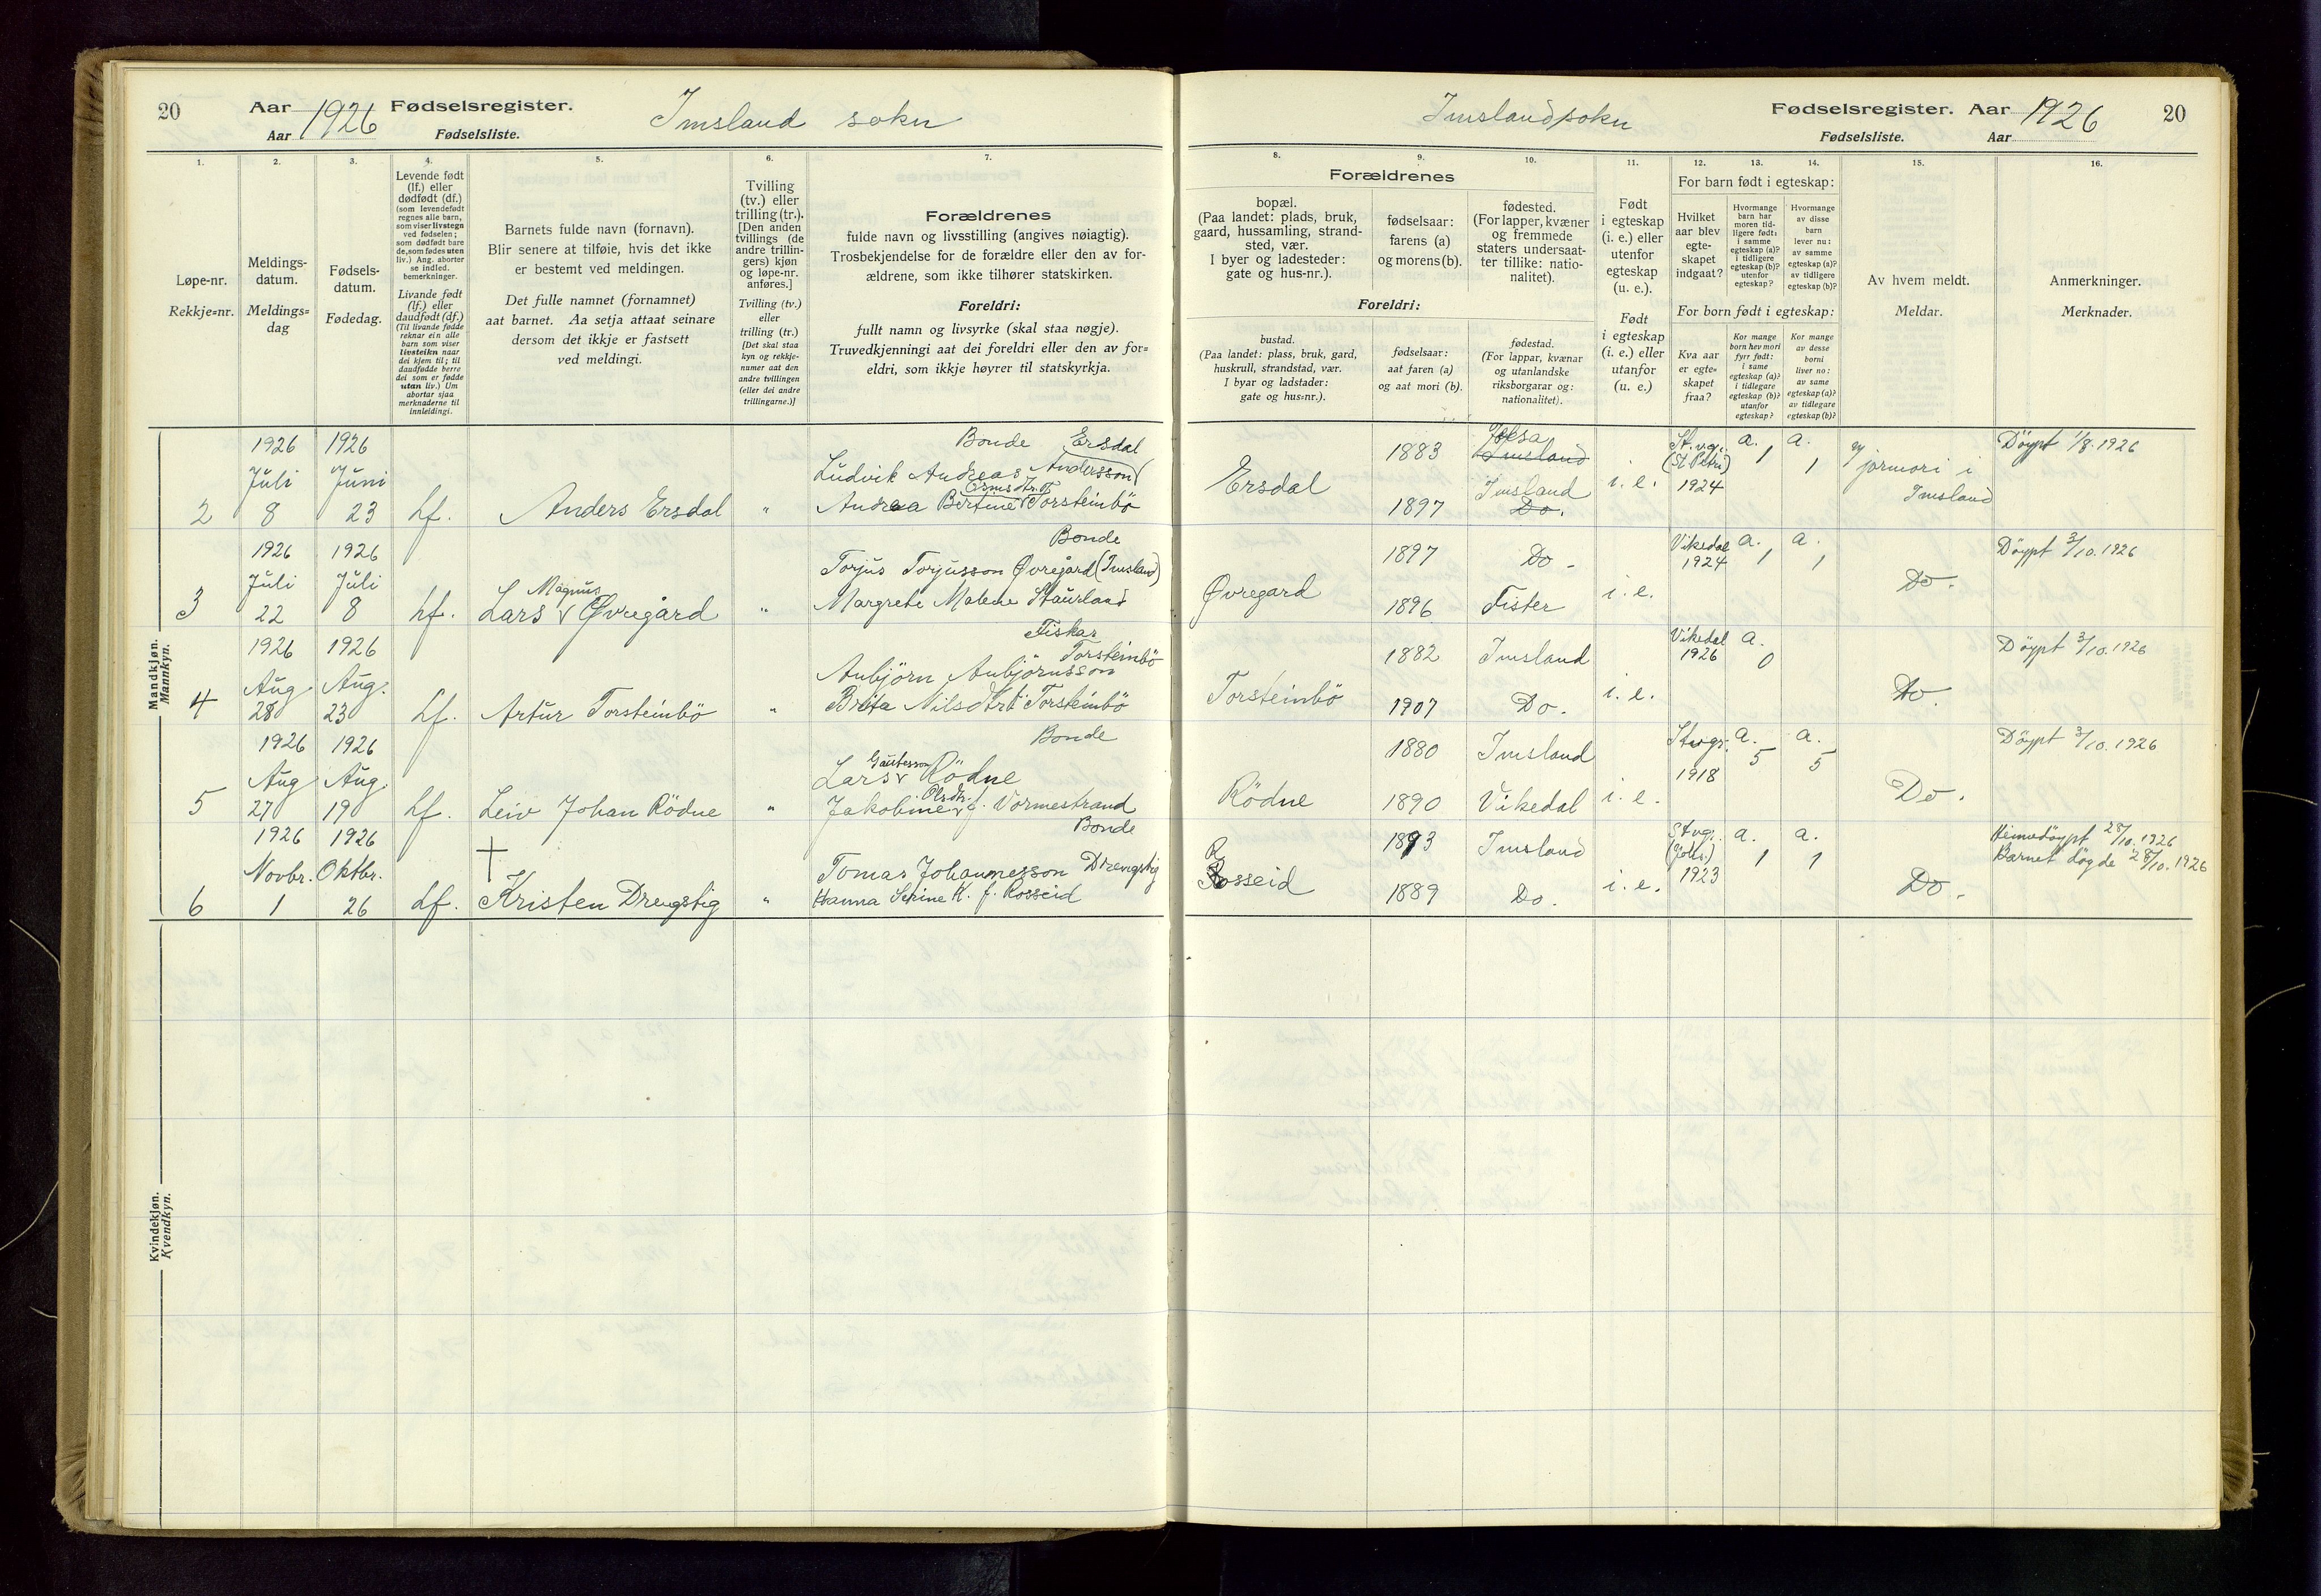 20
Aar 1926 Fødselsregister.
Aar Fødselsliste.
Imsland sokn
1. 2. 3. 4. 5. 6. 7.
Løpe-nr.
Rekkje=nr.
Meldings-
datum.
Meldings=
dag
Fødsels-
datum.
Fødedag.
Levende født
(lf.) eller
dødfødt (df.)
(som levendefødt
regnes alle barn,
som viser livstegn
ved fødselen;
som dødfødt bare
de, som fødes uten
liv.) Ang. aborter
se indled.
bemerkninger.
Livande født
(lf.) eller
daudfødt (df.)
(Til livande fødde
reknar ein alle
barn som viser
livsteikn naar
dei kjem til; til
daudfødde berre
dei som er fødde
utan liv.) Um
abortar sjaa
merknaderne til
innleidingi.
Barnets fulde navn (fornavn).
Blir senere at tilføie, hvis det ikke
er bestemt ved meldingen.
Det fulle namnet (fornamnet)
aat barnet. Aa setja attaat seinare
dersom det ikkje er fastsett
ved meldingi.
Tvilling
(tv.) eller
trilling (tr.).
[Den anden
tvillings (de
andre trillin-
gers) kjøn
og løpe-nr.
anføres.]
Tvilling (tv.)
eller
trilling (tr.)
[Det skal staa
kyn og rekkje-
numer aat den
andre tvillingen
(eller dei andre
trillingarne.)]
Forældrenes
fulde navn og livsstilling (angives nøiagtig).
Trosbekjendelse for de forældre eller den av for-
ældrene, som ikke tilhører statskirken.
Foreldri:
fullt namn og livsyrke (skal staa nøgje).
Truvedkjenningi aat dei foreldri eller den av for=
eldri, som ikkje høyrer til statskyrkja.
Mandkjøn.
Mannkyn.
1926 1926 Bonde Ersdal
Juli Juni Ludvik Andreas Andersson
2 8 23 Lf. Anders Ersdal " Andrea Bertine Torsteinbö
1926 1926 Bonde
Juli Juli Magnus Torjus Torjusson Øvregård (Imsland)
3 22 8 Lf. Lars Øvregård " Margrete Malene Staurland
1926 1926 Fiskar
Torsteinbö
Aug Aug. Aubjörn Aubjörnsson
4 28 23 Lf. Artur Torsteinbö " Brita Nilsdtr. Torsteinbö
1926 1926 Bonde
Aug Aug. Gautesson
Lars Rödne
5 27 19 Lf. Leiv Johan Rödne " Jakobine Olsdtr. f. Vormestrand
1926 1926 Bonde
Novbr. Oktbr. Tomas Johannesson Drengstig
6 1 26 Lf. Kristen Drengstig " Hanna Serine K. f. Rosseid
Kvindekjøn.
Kvendkyn.
Imslandsokn
Fødselsregister. Aar 1926
Fødselsliste. Aar
20
8. 9. 10. 11. 12. 13. 14. 15. 16.
Forældrenes
bopæl.
(Paa landet: plads, bruk,
gaard, hussamling, strand-
sted, vær.
I byer og ladesteder:
gate og hus-nr.).
fødselsaar:
farens (a)
og morens (b).
fødested.
(For lapper, kvæner
og fremmede
staters undersaat-
ter tillike: natio-
nalitet).
Foreldri:
bustad.
(Paa landet: plass, bruk, gard,
huskrull, strandstad, vær.
I byar og ladstader:
gate og hus=nr.).
fødselsaar:
aat faren (a)
og aat mori (b).
fødestad.
(For lappar, kvænar
og utanlandske
riksborgarar og:
nationalitet).
Født
i egteskap
(i. e.) eller
utenfor
egteskap
(u. e.).
Født
i egteskap
(i. e.) eller
utanfor
(u. e.)
For barn født i egteskap:
Hvilket
aar blev
egte-
skapet
indgaat?
Hvormange
barn har
moren tid-
ligere født:
i samme
egteskap (a)?
i tidligere
egteskap (b)?
utenfor
egteskap?
Hvormange
av disse
barn
lever nu:
av samme
egteskap (a)?
av tidligere
egteskap (b)?
For born født i egteskap:
Kva aar
er egte=
skapet
fraa?
Kor mange
born hev mori
fyrr født:
i same
egteskap (a)?
i tidlegare
egteskap (b)?
utanfor
egteskap?
Kor mange
av desse
borni
liver no:
av same
egteskap (a)?
av tidlegare
egteskap (b)?
Av hvem meldt.
Meldar.
Anmerkninger.
Merknader.
1883 Jelsa Imsland St.vgr. (St. Petri) 1924 a. 1 a. 1 Döypt 1/8.1926
Ersdal i. e. jormori i Imsland
1897 Imsland Do.
1897 Do - Vikedal 1924 a. 1 a. 1 Döypt 3/10.1926
Øvregard i. e. Do.
1896 Fister
1882 Imsland Vikedal 1926 a. 0 Döypt 3/10.1926
Torsteinbö i. e. Do.
1907 Do.
1880 Imsland Stvgr. 1918 a. 5 a. 5 Döypt 3/10.1926
Rödne i. e. Do.
1890 Vikedal
1893 Imsland Stvgr. 1923 a. 1 a. 1 Heimedöypt 28/10.1926
Barnet dögde 28/10.1926
Rosseid i. e. Do.
1889 Do.